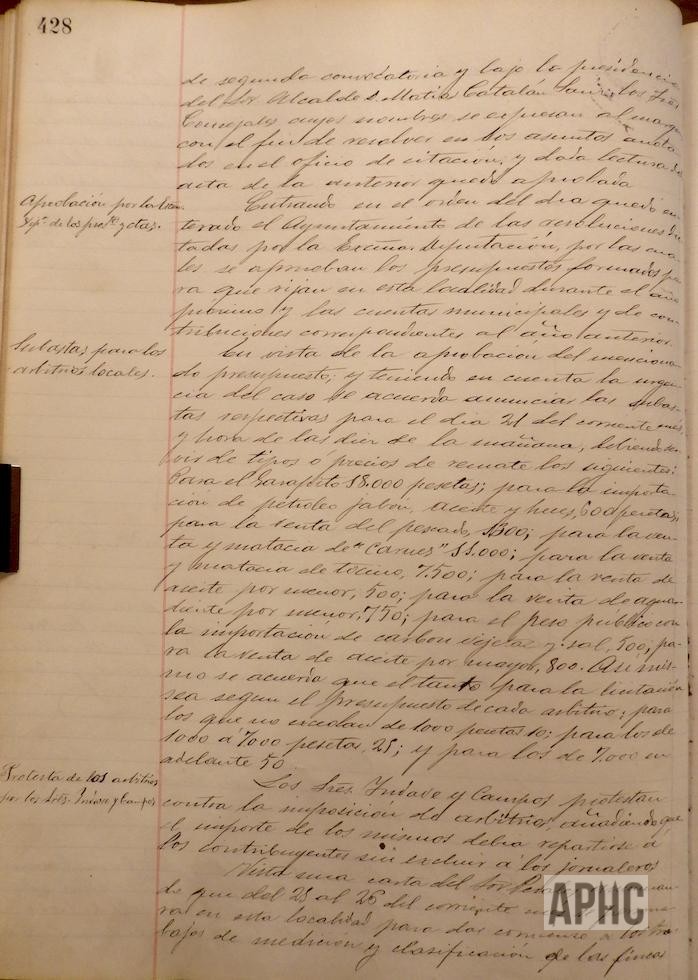 428
de segunda convocatoria y bajo la presidencia
del Sor. Alcalde D. Matias Catalán Sanz los Sres
Concejales cuyos nombres se expresan al margen
con el fin de resolver en los asuntos anota-
dos en el oficio de citación, y dada lectura del
acta de la anterior quedó aprobada
Aprobación por la Excma.
Dipn. de los presptos y ctas.
Entrando en el orden del dia quedó en-
terado el Ayuntamiento de las resoluciones dic-
tadas por la Excma. Diputación, por las cua-
les se aprueban los presupuestos formados pa-
ra que rijan en esta localidad durante el año
próximo y las cuentas municipales y de con-
tribuciones correspondientes al año anterior.
Subastas para los
arbitrios locales.
En vista de la aprobación del menciona-
do presupuesto; y teniendo en cuenta la urgen-
cia del caso se acuerda anunciar las subas-
tas respectivas para el dia 21 del corriente mes
y hora de las diez de la mañana, debiendo ser-
vir de tipos ó precios de remate los siguientes:
Para el Garapito 18.000 pesetas; para la importa-
ción de petroleo jabón, aceite y nieve, 600 pesetas;
para la venta del pescado, 1300; para la ven-
ta y matacia de "Carnes" 11.000; para la venta
y matacia de tocino, 7.500; para la venta de
aceite por menor, 500; para la venta de aguar-
diente por menor, 750; para el peso público con
la importación de carbon vejetal y sal, 500; pa-
ra la venta de aceite por mayor, 800. Asi mis-
mo se acuerda que el tanto para la licitación
sea segun el presupuesto de cada arbitrio; para
los que no excedan de 1000 pesetas 10; para los de
1000 á 7000 pesetas, 25; y para los de 7.000 en
adelante 50.
Protesta de los arbitrios
por los Sres. Indave y Campos
Los Sres. Indave y Campos protestan
contra la imposición de arbitrios, añadiendo que
el importe de los mismos debia repartirse á
los contribuyentes sin excluir á los jornaleros
Vista una carta del Sor
de que del 25 al 26 del corriente
ra en esta localidad para dar comienzo á los tra-
bajos de medición y clasificación de las fincas
APHC